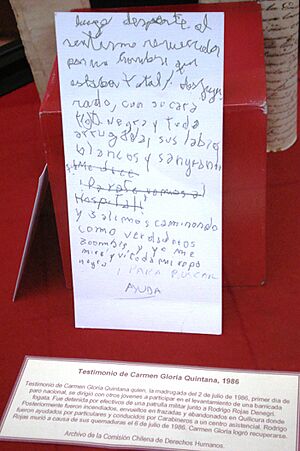 luego desperte al
sentirme remecida
por un hombre que
estaba total/ desfigu
rado, con su cara
negra y toda
arrugada, sus labios
blancos y sangrante
Me dice
Parate vamos al
Hospital!
y salimos caminando
como verdaderos
zoombis y yo me
mire y vi toda mi ropa
negra
PARA BUSCAR
AYUDA
Testimonio de Carmen Gloria Quintana, 1986
Testimonio de Carmen Gloria Quintana quien, la madrugada del 2 de julio de 1986, primer día de
paro nacional, se dirigió con otros jóvenes a participar en el levantamiento de una barricada
fogata. Fue detenida por efectivos de una patrulla militar junto a Rodrigo Rojas Denegri.
Posteriormente fueron incendiados, envueltos en frazadas y abandonados en Quilicura donde
fueron ayudados por particulares y conducidos por Carabineros a un centro asistencial. Rodrigo
Rojas murió a causa de sus quemaduras el 6 de julio de 1986, Carmen Gloria logró recuperarse.
Archivo de la Comisión Chilena de Derechos Humanos.